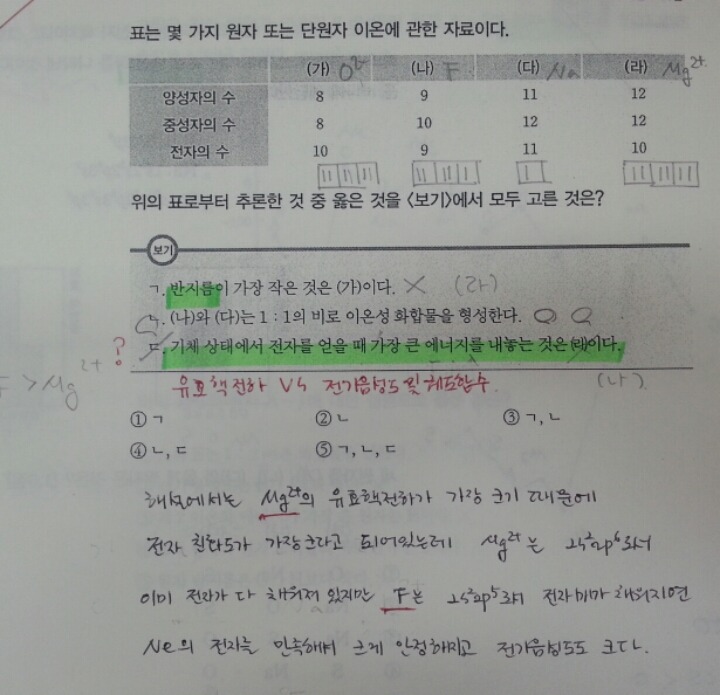 표는 몇 가지 원자 또는 단원자 이온에 관한 자료이다.
(가) O²⁻ (나) F (다) Na (라) Mg²⁺
양성자의 수 8 9 11 12
중성자의 수 8 10 12 12
전자의 수 10 9 11 10
위의 표로부터 추론한 것 중 옳은 것을 <보기>에서 모두 고른 것은?
보기
ㄱ. 반지름이 가장 작은 것은 (가)이다. × (라)
ㄴ. (나)와 (다)는 1 : 1의 비로 이온성 화합물을 형성한다.
? ㄷ. 기체 상태에서 전자를 얻을 때 가장 큰 에너지를 내놓는 것은 (라)이다.
F > Mg²⁺
유효핵전하 VS 전기음성도 및 궤도함수 (나)
① ㄱ ② ㄴ ③ ㄱ, ㄴ
④ ㄴ, ㄷ ⑤ ㄱ, ㄴ, ㄷ
해석에서는 Mg²⁺의 유효핵전하가 가장 크기 때문에
전자 친화도가 가장크다고 되어있는데 Mg²⁺는 2s²2p⁶로서
이미 전자가 다 채워져 있지만 F는 2s²2p⁵로서 전자하나가 채워지면
Ne의 전자를 만족해서 크게 안정해지고 전기음성도도 크다.